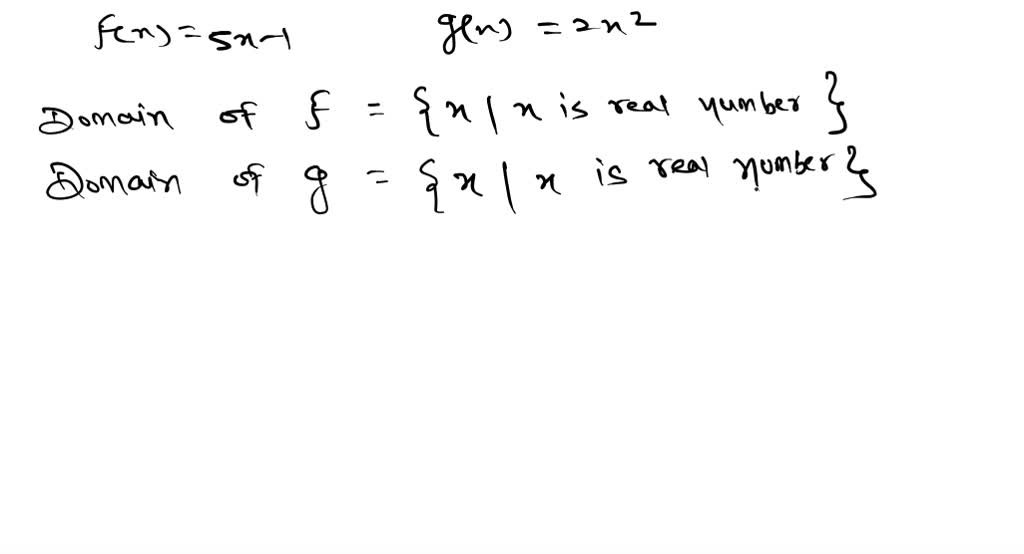 f(x) = 5x-1 g(x) = 2x²
Domain of f = {x | x is real number}
Domain of g = {x | x is real number}